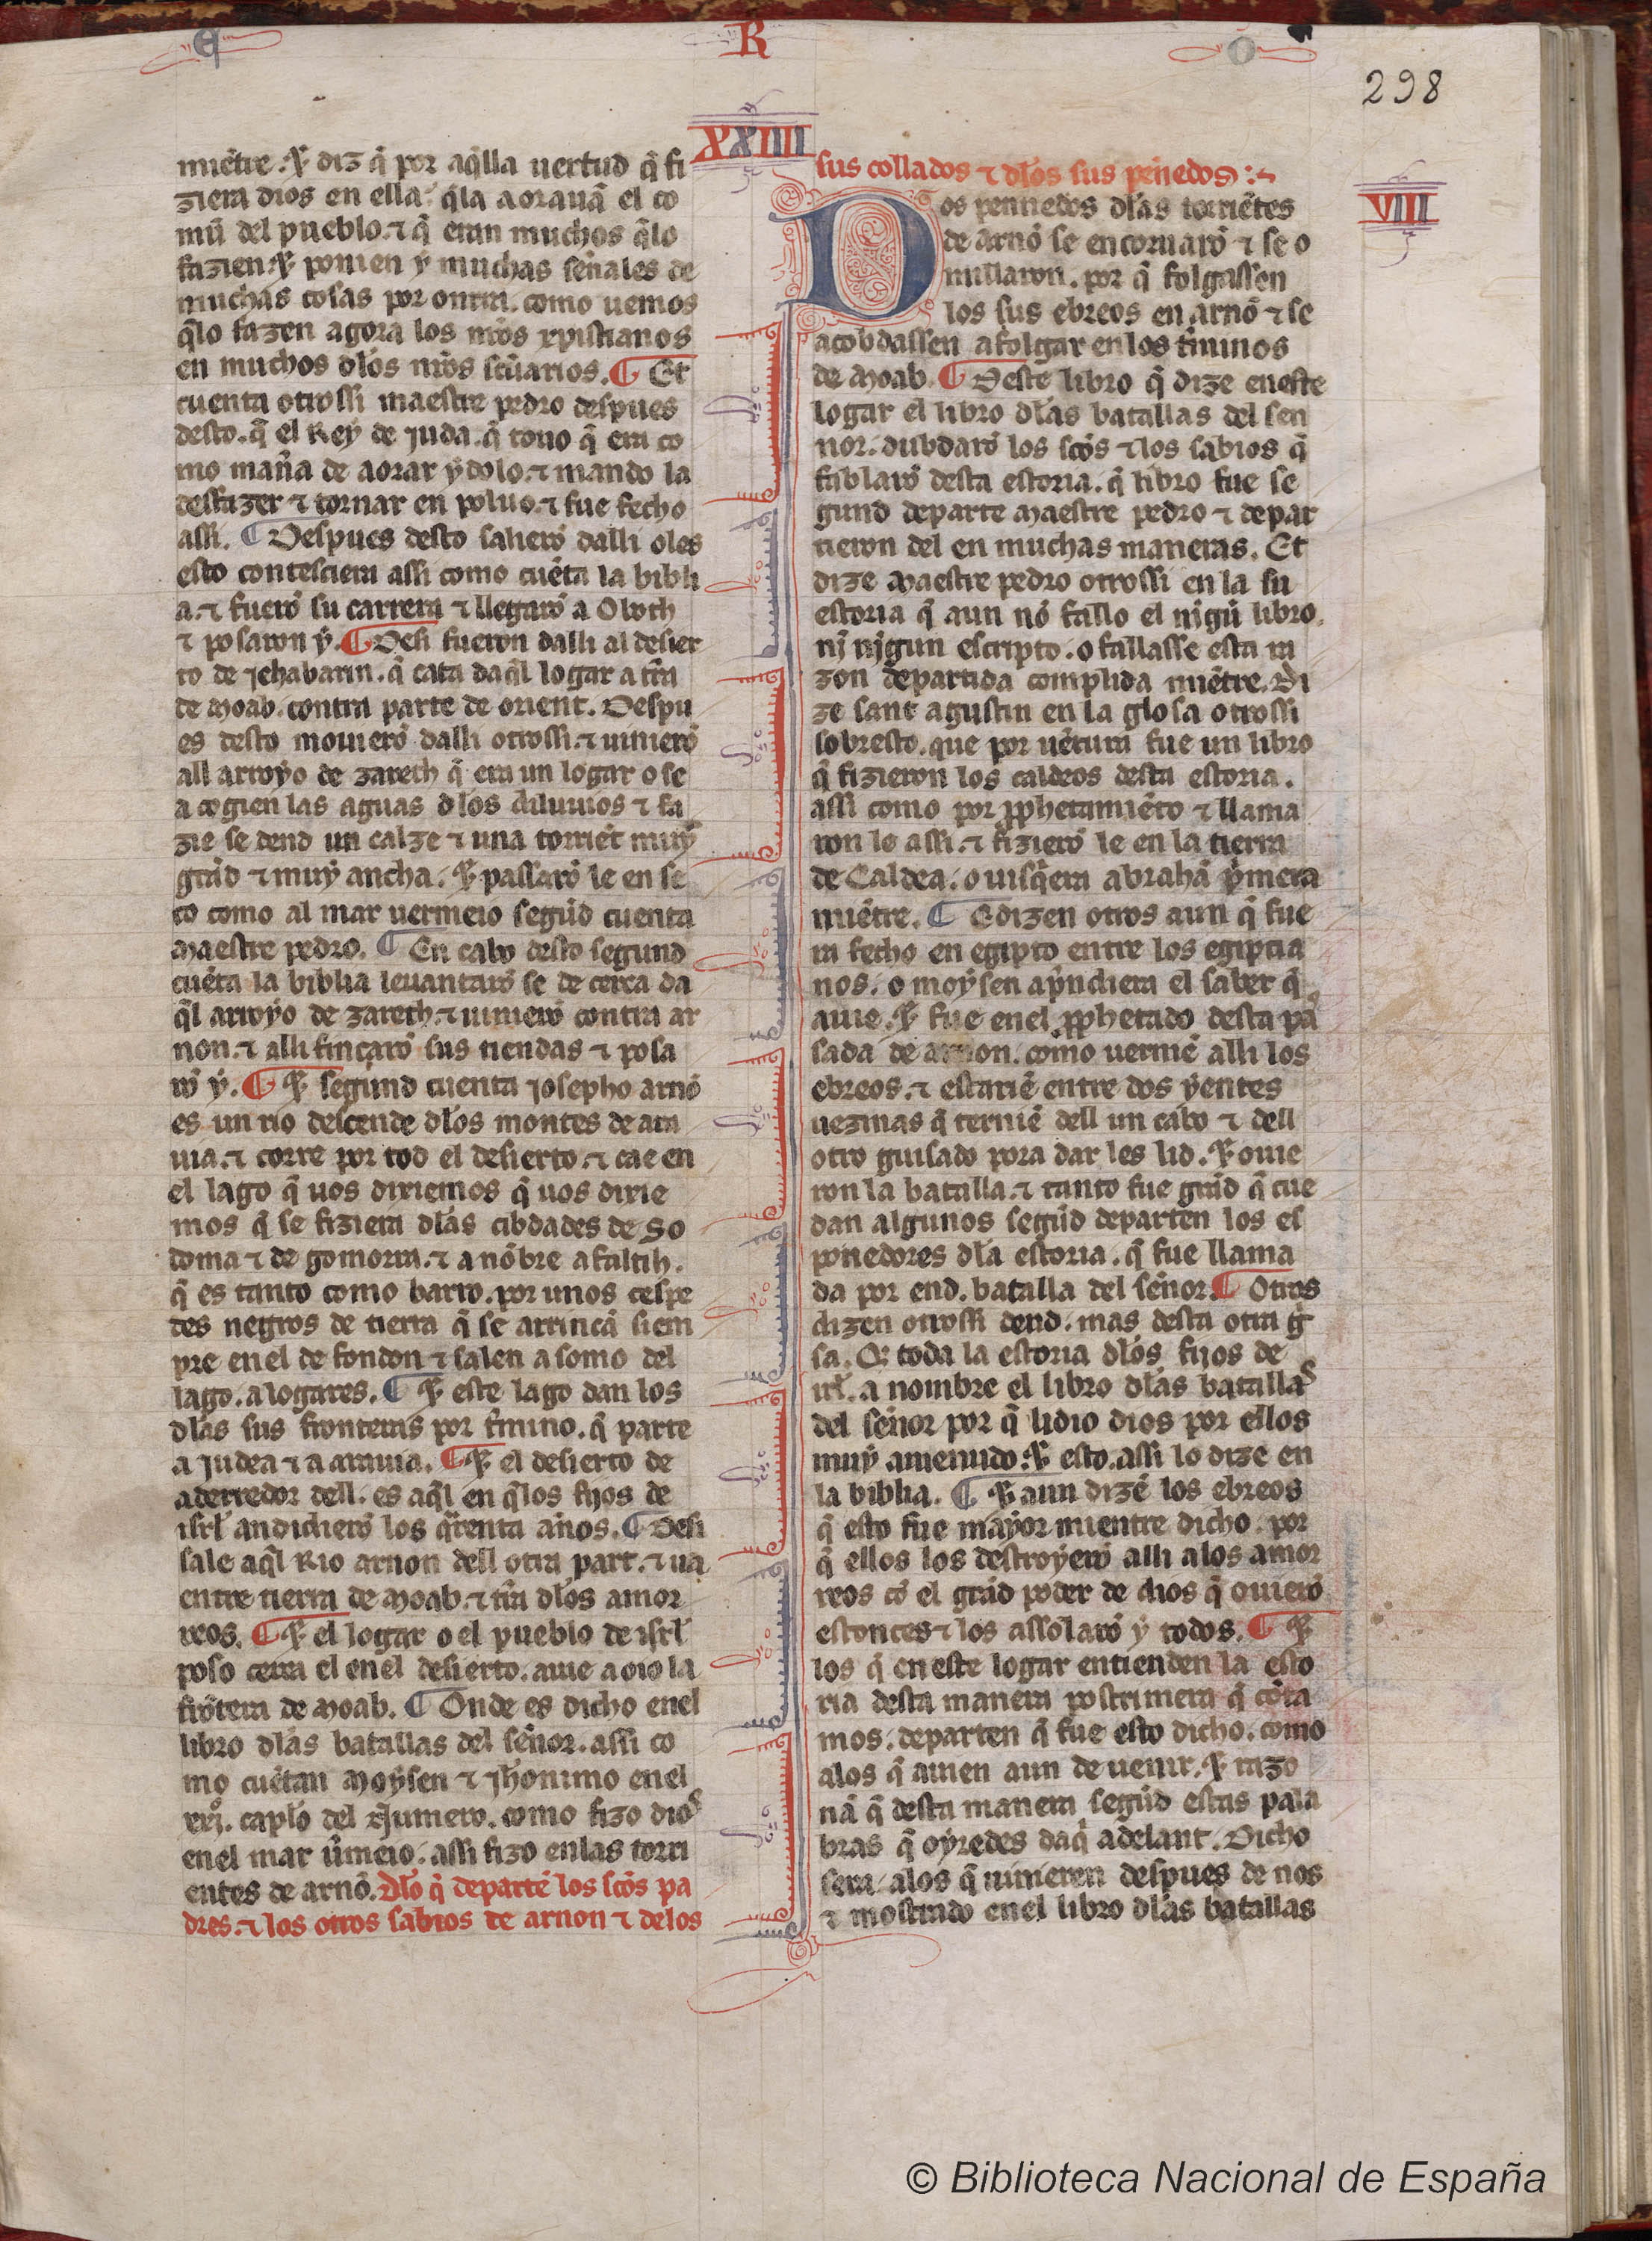 E R O
298
XXIIII
miẽtre. ⁊ diz q̃ por aq̃lla uertud q̃ fi
ziera dios en ella. q̃la aorauã el co
mũ del pueblo. ⁊ q̃ eran muchos q̃lo
fazien. ⁊ ponien ẏ muchas sennales de
muchas cosas por onrra. como uemos
q̃lo fazen agora los nr̃os xp̃istianos
en muchos dl̃os nr̃os sc̃uarios. ¶ Et
cuenta otrossi maestre pedro despues
desto. q̃ el Rey de juda. q̃ touo q̃ era co
mo man̄a de aorar ẏdolo. ⁊ mando la
desfazer ⁊ tornar en poluo. ⁊ fue fecho
assi. ¶ Despues desto salierõ dalli o les
esto contesciera assi como cuẽta la bibli
a. ⁊ fuerõ su carrera ⁊ llegarõ a Oboth
⁊ posaron ẏ. ¶ Desi fueron dalli al desier
to de jehabarin. q̃ cata daq̃l logar a tr̃ra
de Moab. contra parte de orient. Despu
es desto mouierõ dalli otrossi. ⁊ uinierõ
all arroẏo de zareth q̃ era un logar o se
a cogien las aguas dl̃os diluuios ⁊ fa
zie se dend un calze ⁊ una torriẽt muẏ
grãd ⁊ muẏ ancha. ⁊ passarõ le en se
co como al mar uermeio segũd cuenta
Maestre pedro. ¶ En cabo desto segund
cuẽta la biblia leuantarõ se de cerca da
q̃l arroẏo de zareth. ⁊ uinierõ contra ar
non. ⁊ alli fincarõ sus tiendas ⁊ posa
rõ ẏ. ¶ ⁊ segund cuenta josepho arnõ
es un rio descende dl̃os montes de ara
uia. ⁊ corre por tod el desierto. ⁊ cae en
el lago q̃ uos dixiemos q̃ uos dixie
mos q̃ se fiziera dl̃as cibdades de So
doma ⁊ de gomorra. ⁊ a nõbre afaltih.
q̃ es tanto como barro. por unos cespe
des negros de tierra q̃ se arrincã siem
pre en el de fondon ⁊ salen a somo del
lago. a logares. ¶ ⁊ este lago dan los
dl̃as sus fronteras por t̃mino. q̃ parte
a judea ⁊ a arauia. ¶ ⁊ el desierto de
aderredor dell. es aq̃l en q̃ los fijos de
isrl̃ andidierõ los q̃renta an̄os. ¶ Desi
sale aq̃l Rio arnon dell otra part. ⁊ ua
entre tierra de Moab. ⁊ tr̃ra dl̃os amor
reos. ¶ ⁊ el logar o el pueblo de isrl̃
poso cerca el en el desierto. auie a oio la
frõtera de Moab. ¶ Onde es dicho enel
libro dl̃as batallas del sennor. assi co
mo cuẽtan Moẏsen ⁊ jh̃onimo enel
xxj. capl̃o del Nũmero. como fizo dios
enel mar ũmeio. assi fizo enlas torri
entes de arnõ. Dl̃o q̃ departẽ los sc̃os pa
dres. ⁊ los otros sabios de arnon ⁊ delos
sus collados ⁊ dl̃os sus penedos :~
VIII
Dos pennedos dl̃as torriẽtes
de arnõ se encoruarõ ⁊ se o
millaron. por q̃ folgassen
los sus ebreos en arnõ ⁊ se
acobdassen a folgar enlos t̃minos
de Moab. ¶ Deste libro q̃ dize eneste
logar el libro dl̃as batallas del sen
nor. dubdarõ los sc̃os ⁊ los sabios q̃
fablarõ desta estoria. q̃ libro fue se
gund departe Maestre pedro ⁊ depar
tieron del en muchas maneras. Et
dize Maestre pedro otrossi en la su
estoria q̃ aun nõ fallo el nigũ libro.
nj njgun escripto. o fallasse esta ra
zon departida complida miẽtre. Di
ze sant agustin en la glosa otrossi
sobresto. que por uẽtura fue un libro
q̃ fizieron los caldeos desta estoria.
assi como por p̃phetamiẽto ⁊ llama
ron lo assi. ⁊ fizierõ le en la tierra
de Caldea. o uisq̃era abrahã p̃mera
miẽtre. ¶ E dizen otros aun q̃ fue
ra fecho en egipto entre los egiptia
nos. o moẏsen ap̃ndiera el saber q̃
auie. ⁊ fue enel p̃phetado desta pa
sada de arnon. como uerniẽ alli los
ebreos. ⁊ estariẽ entre dos ẏentes
uezinas q̃ ternie dell un cabo ⁊ dell
otro guisado pora dar les lid. ⁊ ouie
ron la batalla. ⁊ tanto fue grãd q̃ cue
dan algunos segũd departen los es
ponedores dl̃a estoria. q̃ fue llama
da por end. batalla del sennor. ¶ Otros
dizen otrossi dend. mas desta otra gⁱ
sa. Q̃ toda la estoria dl̃os fijos de
irl̃. a nombre el libro dl̃as batallas
del sennor por q̃ lidio dios por ellos
muẏ amenudo. ⁊ esto. assi lo dize en
la biblia. ¶ ⁊ aun dizẽ los ebreos
q̃ esto fue maẏor mientre dicho. por
q̃ ellos los destroẏerõ alli alos amor
reos cõ el grãd poder de dios q̃ ouierõ
estonces ⁊ los assolarõ ẏ todos. ¶ ⁊
los q̃ en este logar entienden la esto
ria desta manera postrimera q̃ cõta
mos. departen q̃ fue esto dicho. como
alos q̃ auien aun de uenir. ⁊ razo
nã q̃ desta manera segũd estas pala
bras q̃ oẏredes daq̃ adelant. Dicho
sera. alos q̃ uinieren despues de nos
⁊ mostrado enel libro dl̃as batallas
© Biblioteca Nacional de España